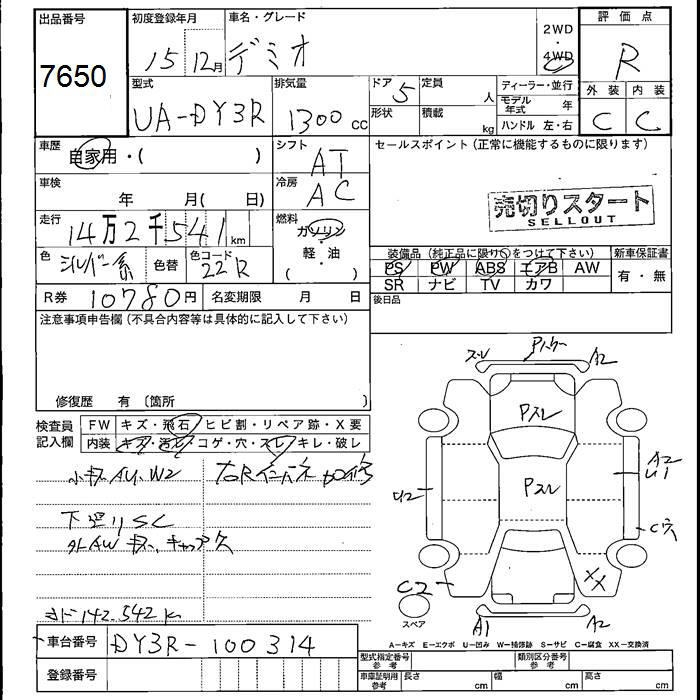 出品番号
7650
初度登録年月
15 12月
車名・グレード
デミオ
2WD
4WD
評価点
R
外装 内装
C C
型式
UA-DY3R
排気量
1300 cc
ドア 5 定員 人
形状 積載 kg
ディーラー・並行
モデル年式 年
ハンドル 左・右
車歴
自家用・( )
シフト
AT
セールスポイント (正常に機能するものに限ります)
売切りスタート
SELLOUT
車検
年 月( 日)
冷房
AC
走行
14万2千541km
燃料
ガソリン
軽・油
( )
色
シルバー系
色替
色コード
22R
装備品 (純正品に限り○をつけて下さい)
PS PW ABS エアB AW
SR ナビ TV カワ
新車保証書
有・無
R券 10780円
名変期限 月 日
後日品
注意事項申告欄 (不具合内容等は具体的に記入して下さい)
修復歴 有 〔箇所
検査員
記入欄
FW キズ・飛石・ヒビ割・リペア跡・X要
内装 キズ・汚レ・コゲ・穴・スレ・キレ・破レ
小キズ AU、W2
下廻りSC
142.542K
スレ
A2
Pスレ
Pスレ
U2
A2
U1
C穴
XX
C2
スペア
A1
A2
A-キズ E-エクボ U-凹み W-補修跡 S-サビ C-腐食 XX-交換済
車台番号
DY3R-100314
登録番号
型式指定番号
参考
類別区分番号
参考
車庫証明用
参考
長さ cm
幅 cm
高さ cm